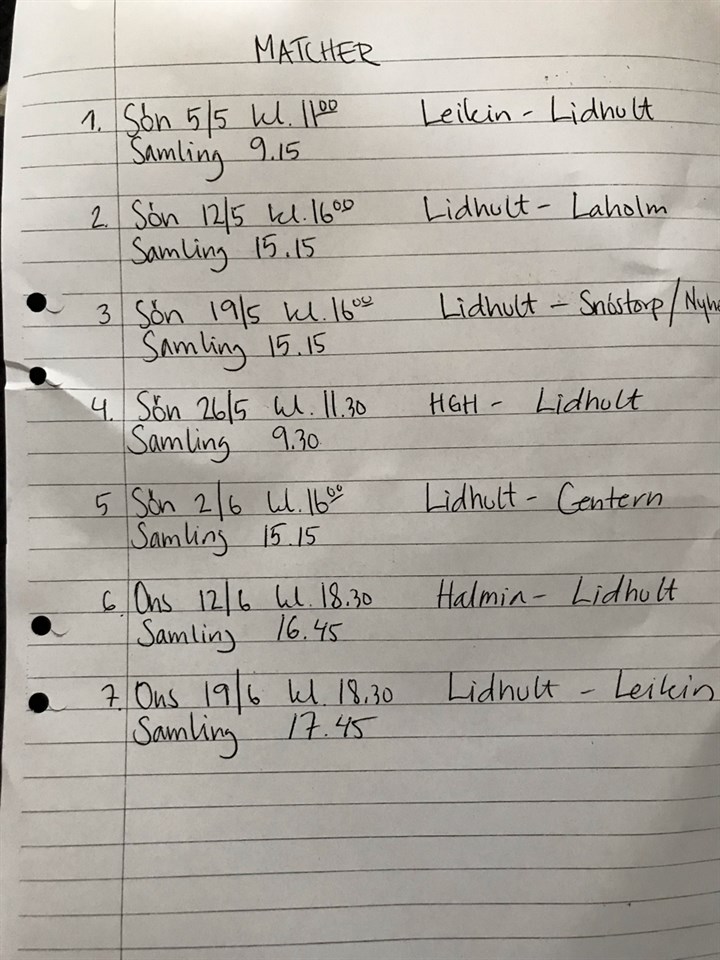 MATCHER
1. Sön 5/5 kl. 11⁰⁰ Leikin - Lidhult
Samling 9.15
2. Sön 12/5 kl. 16⁰⁰ Lidhult - Laholm
Samling 15.15
3 Sön 19/5 kl. 16⁰⁰ Lidhult - Snöstorp/
Samling 15.15
4. Sön 26/5 kl. 11.30 HGH - Lidhult
Samling 9.30
5 Sön 2/6 kl. 16⁰⁰ Lidhult - Centern
Samling 15.15
6. Ons 12/6 kl. 18.30 Halmia - Lidhult
Samling 16.45
7. Ons 19/6 kl. 18.30 Lidhult - Leikin
Samling 17.45